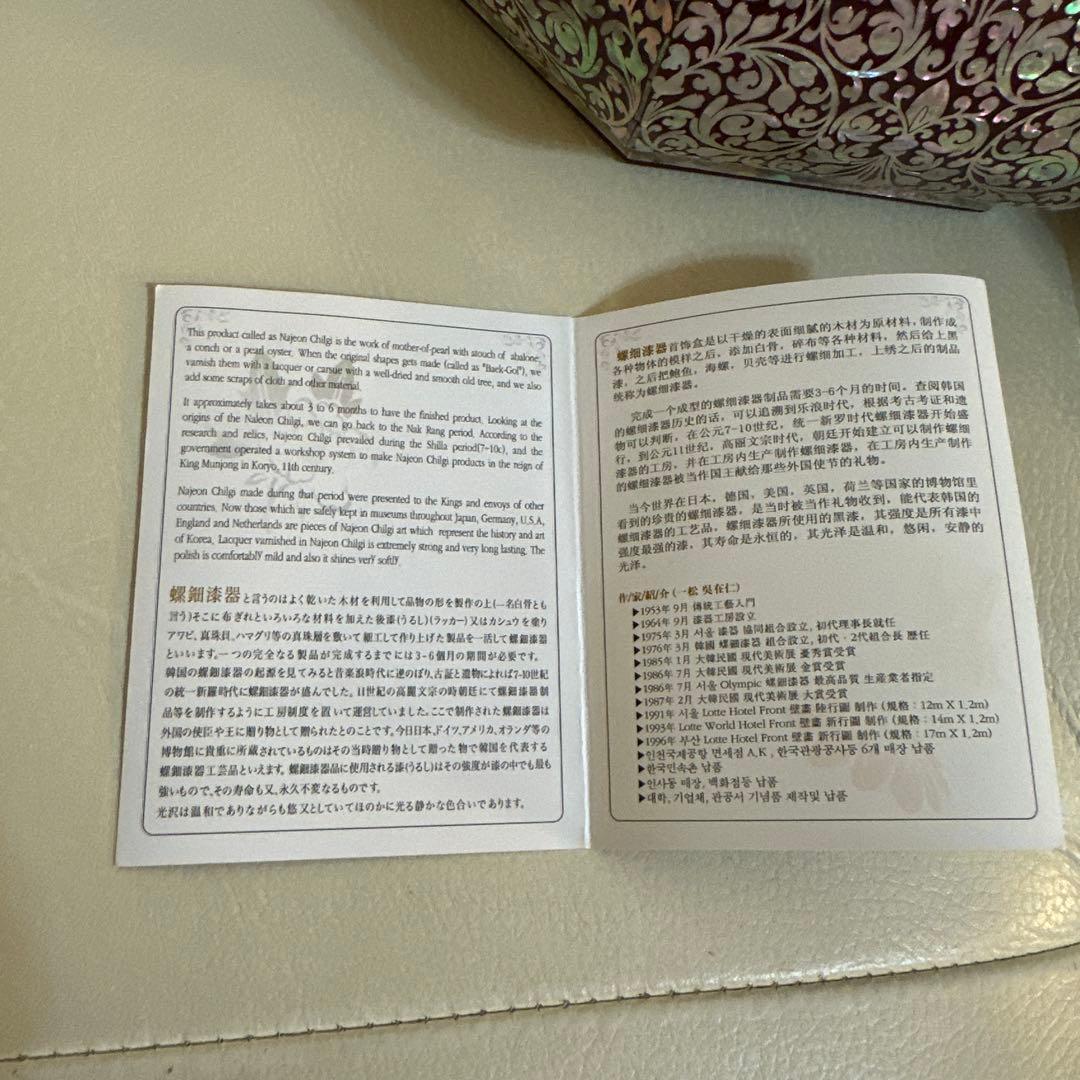 This product called as Najeon Chilgi is the work of mother-of-pearl with atouch of abalone,
a conch or a pearl oyster. When the original shapes gets made (called as "Baek-Gol"), we
varnish them with a lacquer or carsue with a well-dried and smooth old tree, and we also
add some scraps of cloth and other material.
It approximately takes about 3 to 6 months to have the finished product. Looking at the
origins of the Naleon Chilgi, we can go back to the Nak Rang period. According to the
research and relics, Najeon Chilgi prevailed during the Shilla period(7~10c), and the
government operated a workshop system to make Najeon Chilgi products in the reign of
King Munjong in Koryo, 11th century.
Najeon Chilgi made during that period were presented to the Kings and envoys of other
countries. Now those which are safely kept in museums throughout Japan, Germany, U.S.A,
England and Netherlands are pieces of Najeon Chilgi art which represent the history and art
of Korea. Lacquer varnished in Najeon Chilgi is extremely strong and very long lasting. The
polish is comfortably mild and also it shines very softly.
螺鈿漆器と言うのはよく乾いた木材を利用して品物の形を製作の上(一名白骨とも
言う)そこに布ぎれといろいろな材料を加えた後漆(うるし)(ラッカー)又はカシュウを塗り
アワビ、真珠貝、ハマグリ等の真珠層を敷いて細工して作り上げた製品を一活して螺鈿漆器
といいます。一つの完全なる製品が完成するまでには3-6個月の期間が必要です。
韓国の螺鈿漆器の起源を見てみると昔楽浪時代に逆のぼり、古証と遺物によれば7-10世紀
の統一新羅時代に螺鈿漆器が盛んでした。11世紀の高麗文宗の時朝廷にて螺鈿漆器制
品等を制作するように工房制度を置いて運営していました。ここで制作された螺鈿漆器は
外国の使臣や王に贈り物として贈られたとのことです。今日日本、ドイツ、アメリカ、オランダ等の
博物館に貴重に所蔵されているものはその当時贈り物として贈った物で韓国を代表する
螺鈿漆器工芸品といえます。螺鈿漆器品に使用される漆(うるし)はその強度が漆の中でも最も
強いもので、その寿命も又、永久不変なるものです。
光沢は温和でありながらも悠又としていてほのかに光る静かな色合いであります。
螺细漆器首饰盒是以干燥的表面细腻的木材为原材料，制作成
各种物体的模样之后，添加白骨，碎布等各种材料，然后给上黑
漆，之后把鲍鱼，海螺，贝壳等进行螺细加工，上绣之后的制品
统称为螺细漆器。
完成一个成型的螺细漆器制品需要3-6个月的时间。查阅韩国
的螺细漆器历史的话，可以追溯到乐浪时代，根据考古考证和遗
物可以判断，在公元7-10世纪，统一新罗时代螺细漆器开始盛
行，到公元11世纪，高丽文宗时代，朝廷开始建立可以制作螺细
漆器的工房，并在工房内生产制作螺细漆器，在工房内生产制作
的螺细漆器被当作国王献给那些外国使节的礼物。
当今世界在日本，德国，美国，英国，荷兰等国家的博物馆里
看到的珍贵的螺细漆器，是当时被当作礼物收到，能代表韩国的
螺细漆器的工艺品，螺细漆器所使用的黑漆，其强度是所有漆中
强度最强的漆，其寿命是永恒的，其光泽是温和，悠闲，安静的
光泽。
作/家/紹/介 (一松 吳在仁)
▶1953年 9月 傳統工藝入門
▶1964年 9月 漆器工房設立
▶1975年 3月 서울 漆器 協同組合設立, 初代理事長就任
▶1976年 3月 韓國 螺鈿漆器 組合設立, 初代·2代組合長 歷任
▶1985年 1月 大韓民國 現代美術展 優秀賞受賞
▶1986年 7月 大韓民國 現代美術展 金賞受賞
▶1986年 7月 서울 Olympic 螺鈿漆器 最高品質 生産業者指定
▶1987年 2月 大韓民國 現代美術展 大賞受賞
▶1991年 서울 Lotte Hotel Front 壁畵 陸行圖 制作 (規格 : 12m X 1.2m)
▶1993年 Lotte World Hotel Front 壁畵 新行圖 制作 (規格 : 14m X 1.2m)
▶1996年 부산 Lotte Hotel Front 壁畵 新行圖 制作 (規格 : 17m X 1.2m)
▶인천국제공항 면세점 A.K , 한국관광공사등 6개 매장 납품
▶한국민속촌 납품
▶인사동 매장, 백화점등 납품
▶대학, 기업체, 관공서 기념품 제작및 납품